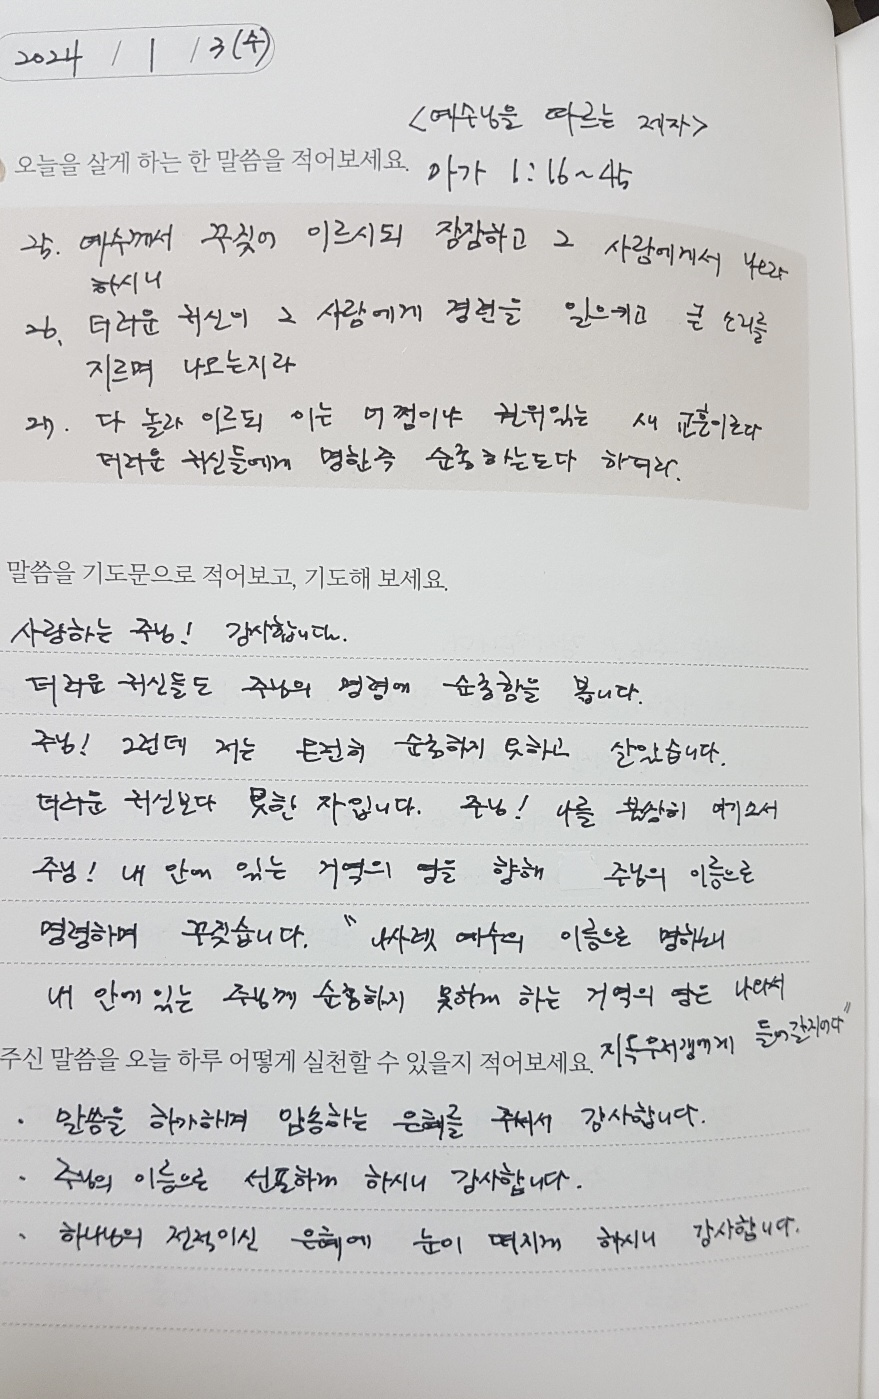 2024 / 1 / 3 (수)
<예수님을 따르는 제자>
오늘을 살게 하는 한 말씀을 적어보세요. 마가 1:16~45
25. 예수께서 꾸짖어 이르시되 잠잠하고 그 사람에게서 나오라
하시니
26. 더러운 귀신이 그 사람에게 경련을 일으키고 큰 소리를
지르며 나오는지라
27. 다 놀라 이르되 이는 어찜이냐 권위있는 새 교훈이로다
더러운 귀신들에게 명한즉 순종하는도다 하더라.
말씀을 기도문으로 적어보고, 기도해 보세요.
사랑하는 주님! 감사합니다.
더러운 귀신들도 주님의 명령에 순종함을 봅니다.
주님! 그런데 저는 온전히 순종하지 못하고 살았습니다.
더러운 귀신보다 못한 자입니다. 주님! 나를 불쌍히 여기소서
주님! 내 안에 있는 거역의 영을 향해 주님의 이름으로
명령하며 꾸짖습니다. "나사렛 예수의 이름으로 명하노니
내 안에 있는 주님께 순종하지 못하게 하는 거역의 영은 나와서
들어갈지어다"
주신 말씀을 오늘 하루 어떻게 실천할 수 있을지 적어보세요.
· 말씀을 하가하며 암송하는 은혜를 주셔서 감사합니다.
· 주님의 이름으로 선포하게 하시니 감사합니다.
· 하나님의 전적이신 은혜에 눈이 떠지게 하시니 감사합니다.